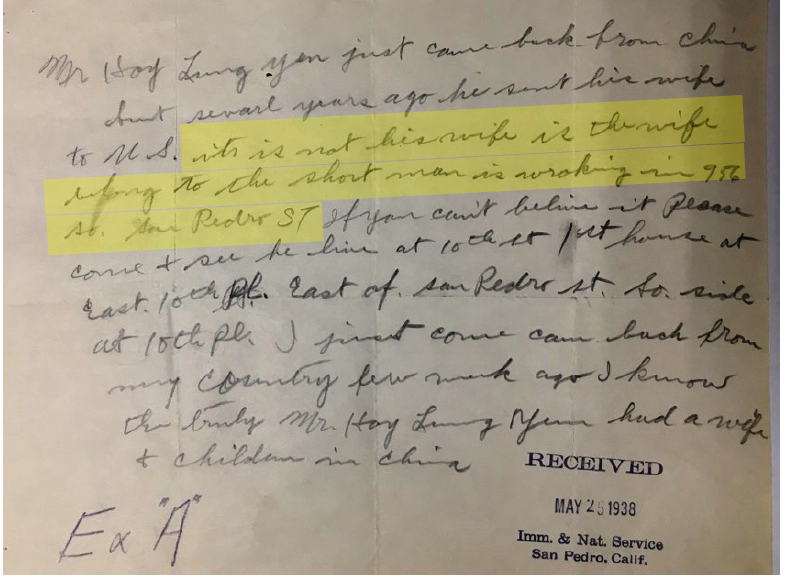 Mr Hoy Lung Yen just came back from China
but sevarl years ago he sent his wife
to U.S. its is not his wife is the wife
belong to the short man is wroking in 956
so. San Pedro ST If you can't belive it Please
come & see he live at 10th st 1st house at
East. 10th Pl. East of. San Pedro st. So. side
at 10th Pl. I just come cam back from
my Country few week ago I know
the truly Mr. Hoy Lung Yen had a wife
& childen in China
RECEIVED
MAY 25 1938
Imm. & Nat. Service
San Pedro, Calif.
Ex "A"